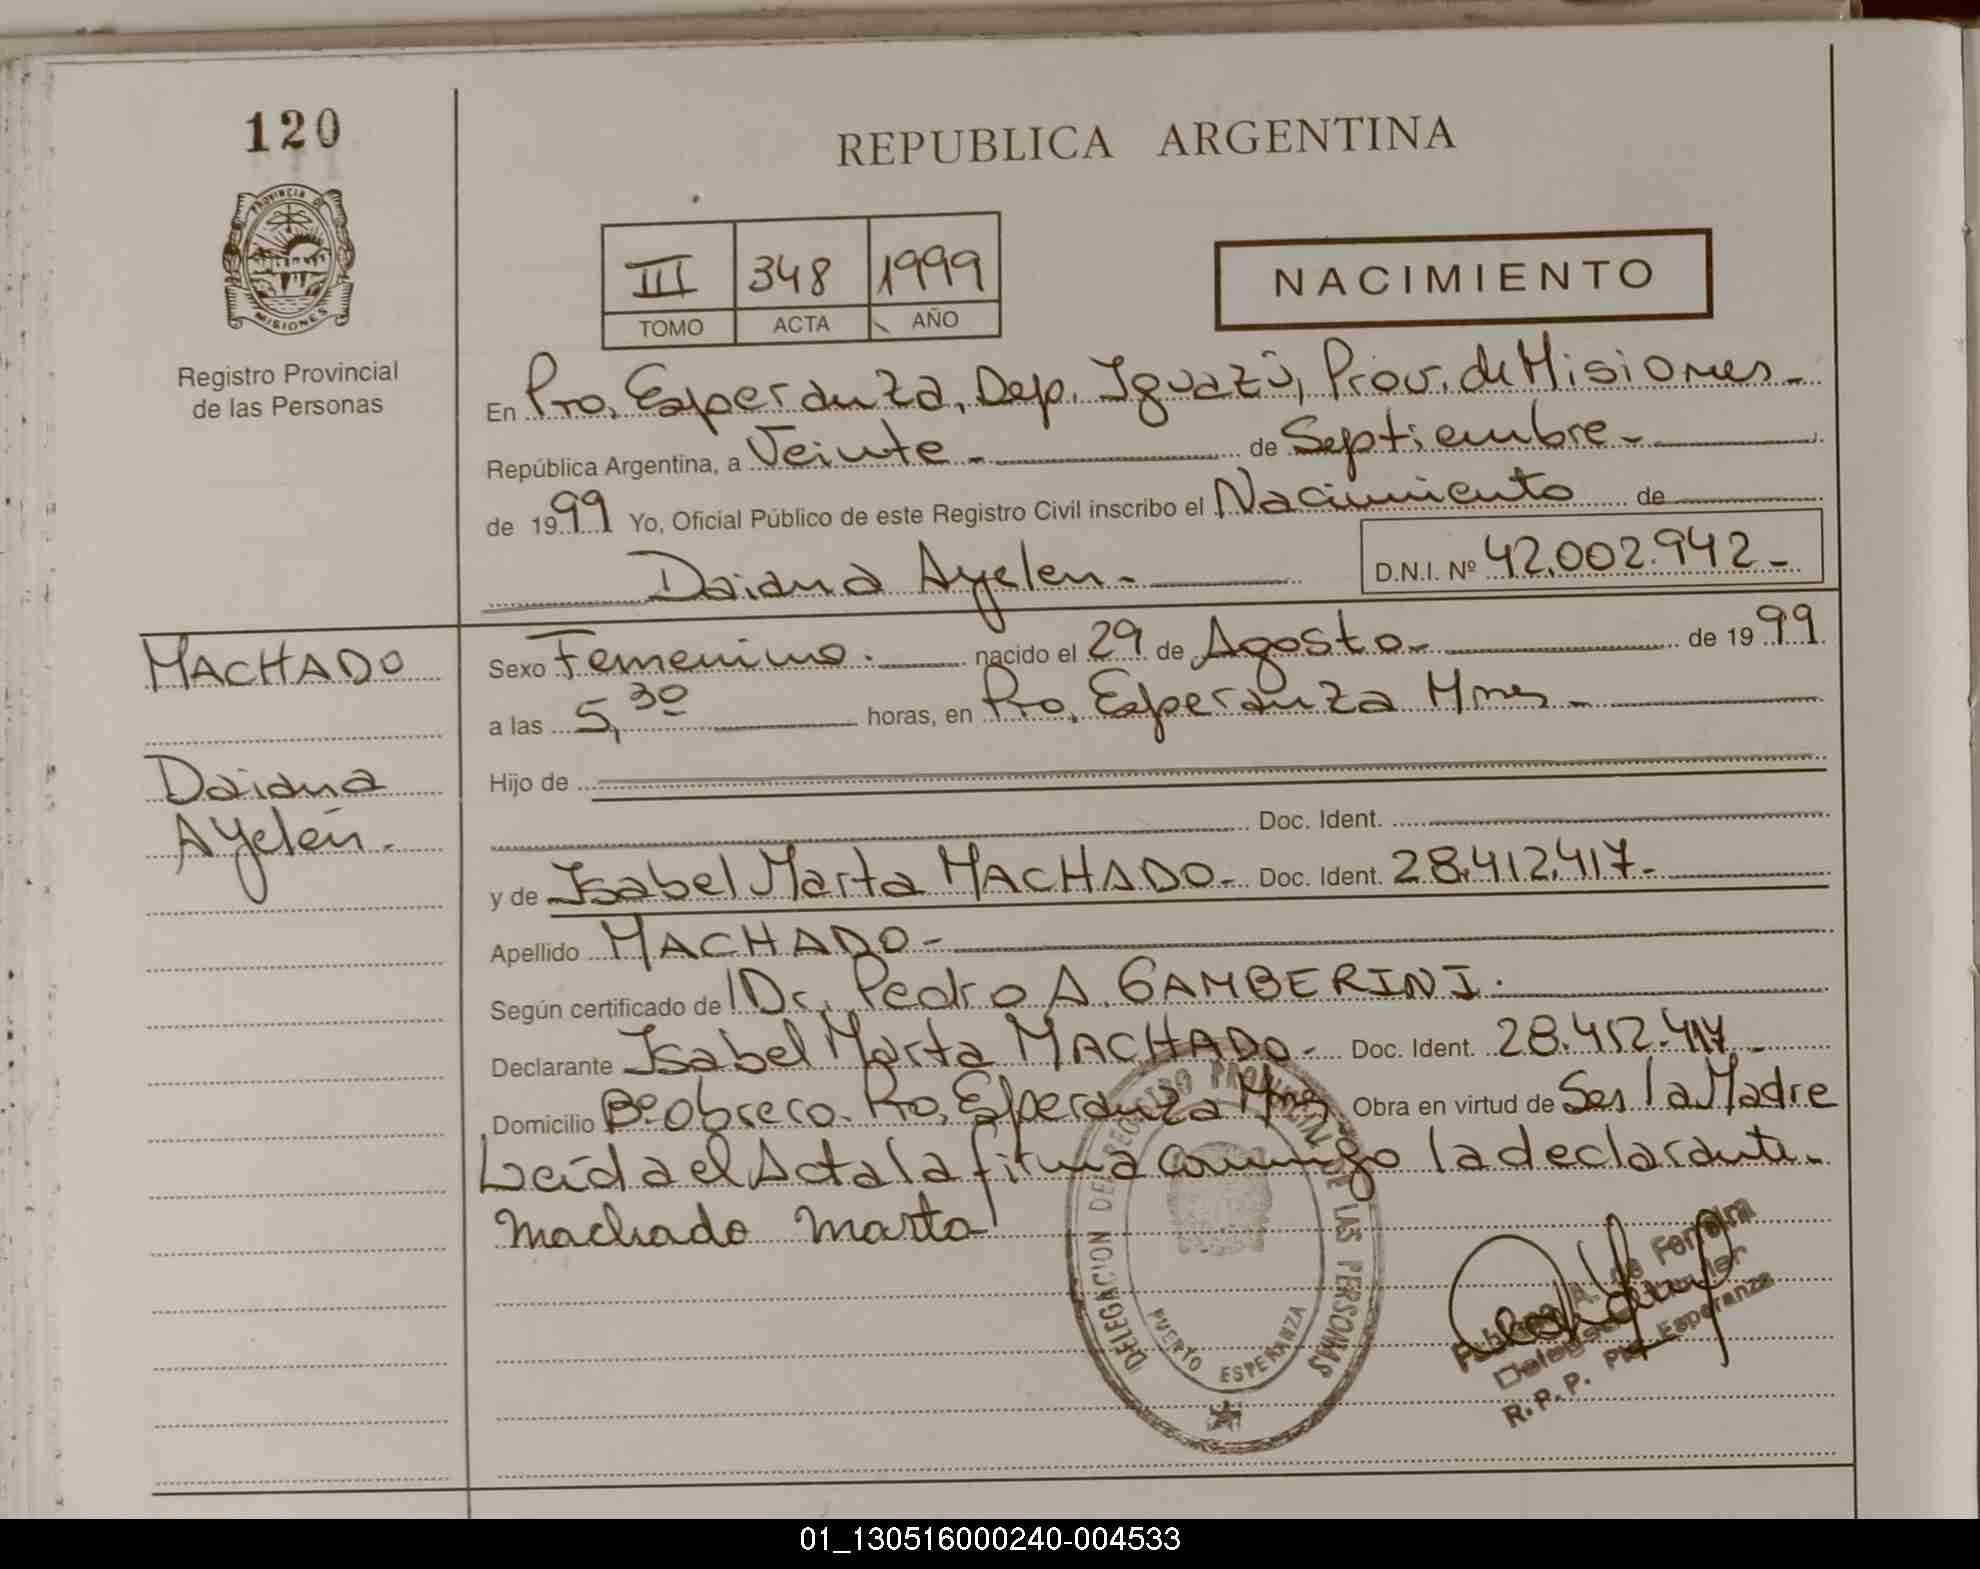 120
REPUBLICA ARGENTINA
PROVINCIA DE
MISIONES
Registro Provincial
de las Personas
III 348 1999
TOMO ACTA AÑO
NACIMIENTO
En Pto. Esperanza, Dep. Iguazú, Prov. de Misiones-
República Argentina, a Veinte- de Septiembre-
de 1999 Yo, Oficial Público de este Registro Civil inscribo el Nacimiento de
Daiana Ayelen- D.N.I. Nº 42.002.942-
MACHADO
Daiana
Ayelén-
Sexo Femenino. nacido el 29 de Agosto- de 1999
a las 5,30 horas, en Pto. Esperanza Mnes-
Hijo de
Doc. Ident.
y de Isabel Marta MACHADO- Doc. Ident. 28.412.417-
Apellido MACHADO-
Según certificado de Dr. Pedro A. GAMBERINI.
Declarante Isabel Marta MACHADO- Doc. Ident. 28.412.417-
Domicilio Bº Obrero. Pto. Esperanza Mnes Obra en virtud de Ser la Madre
Leída el Acta la firma conmigo la declarante-
Machado Marta
DELEGACION DEL REGISTRO PROVINCIAL DE LAS PERSONAS
PUERTO ESPERANZA
A. de Ferreira
Delegada Titular
R.P.P. Pto. Esperanza
01_130516000240-004533